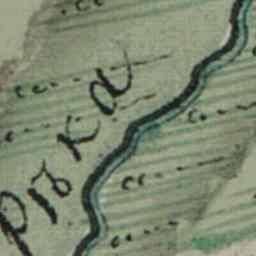 рѣка